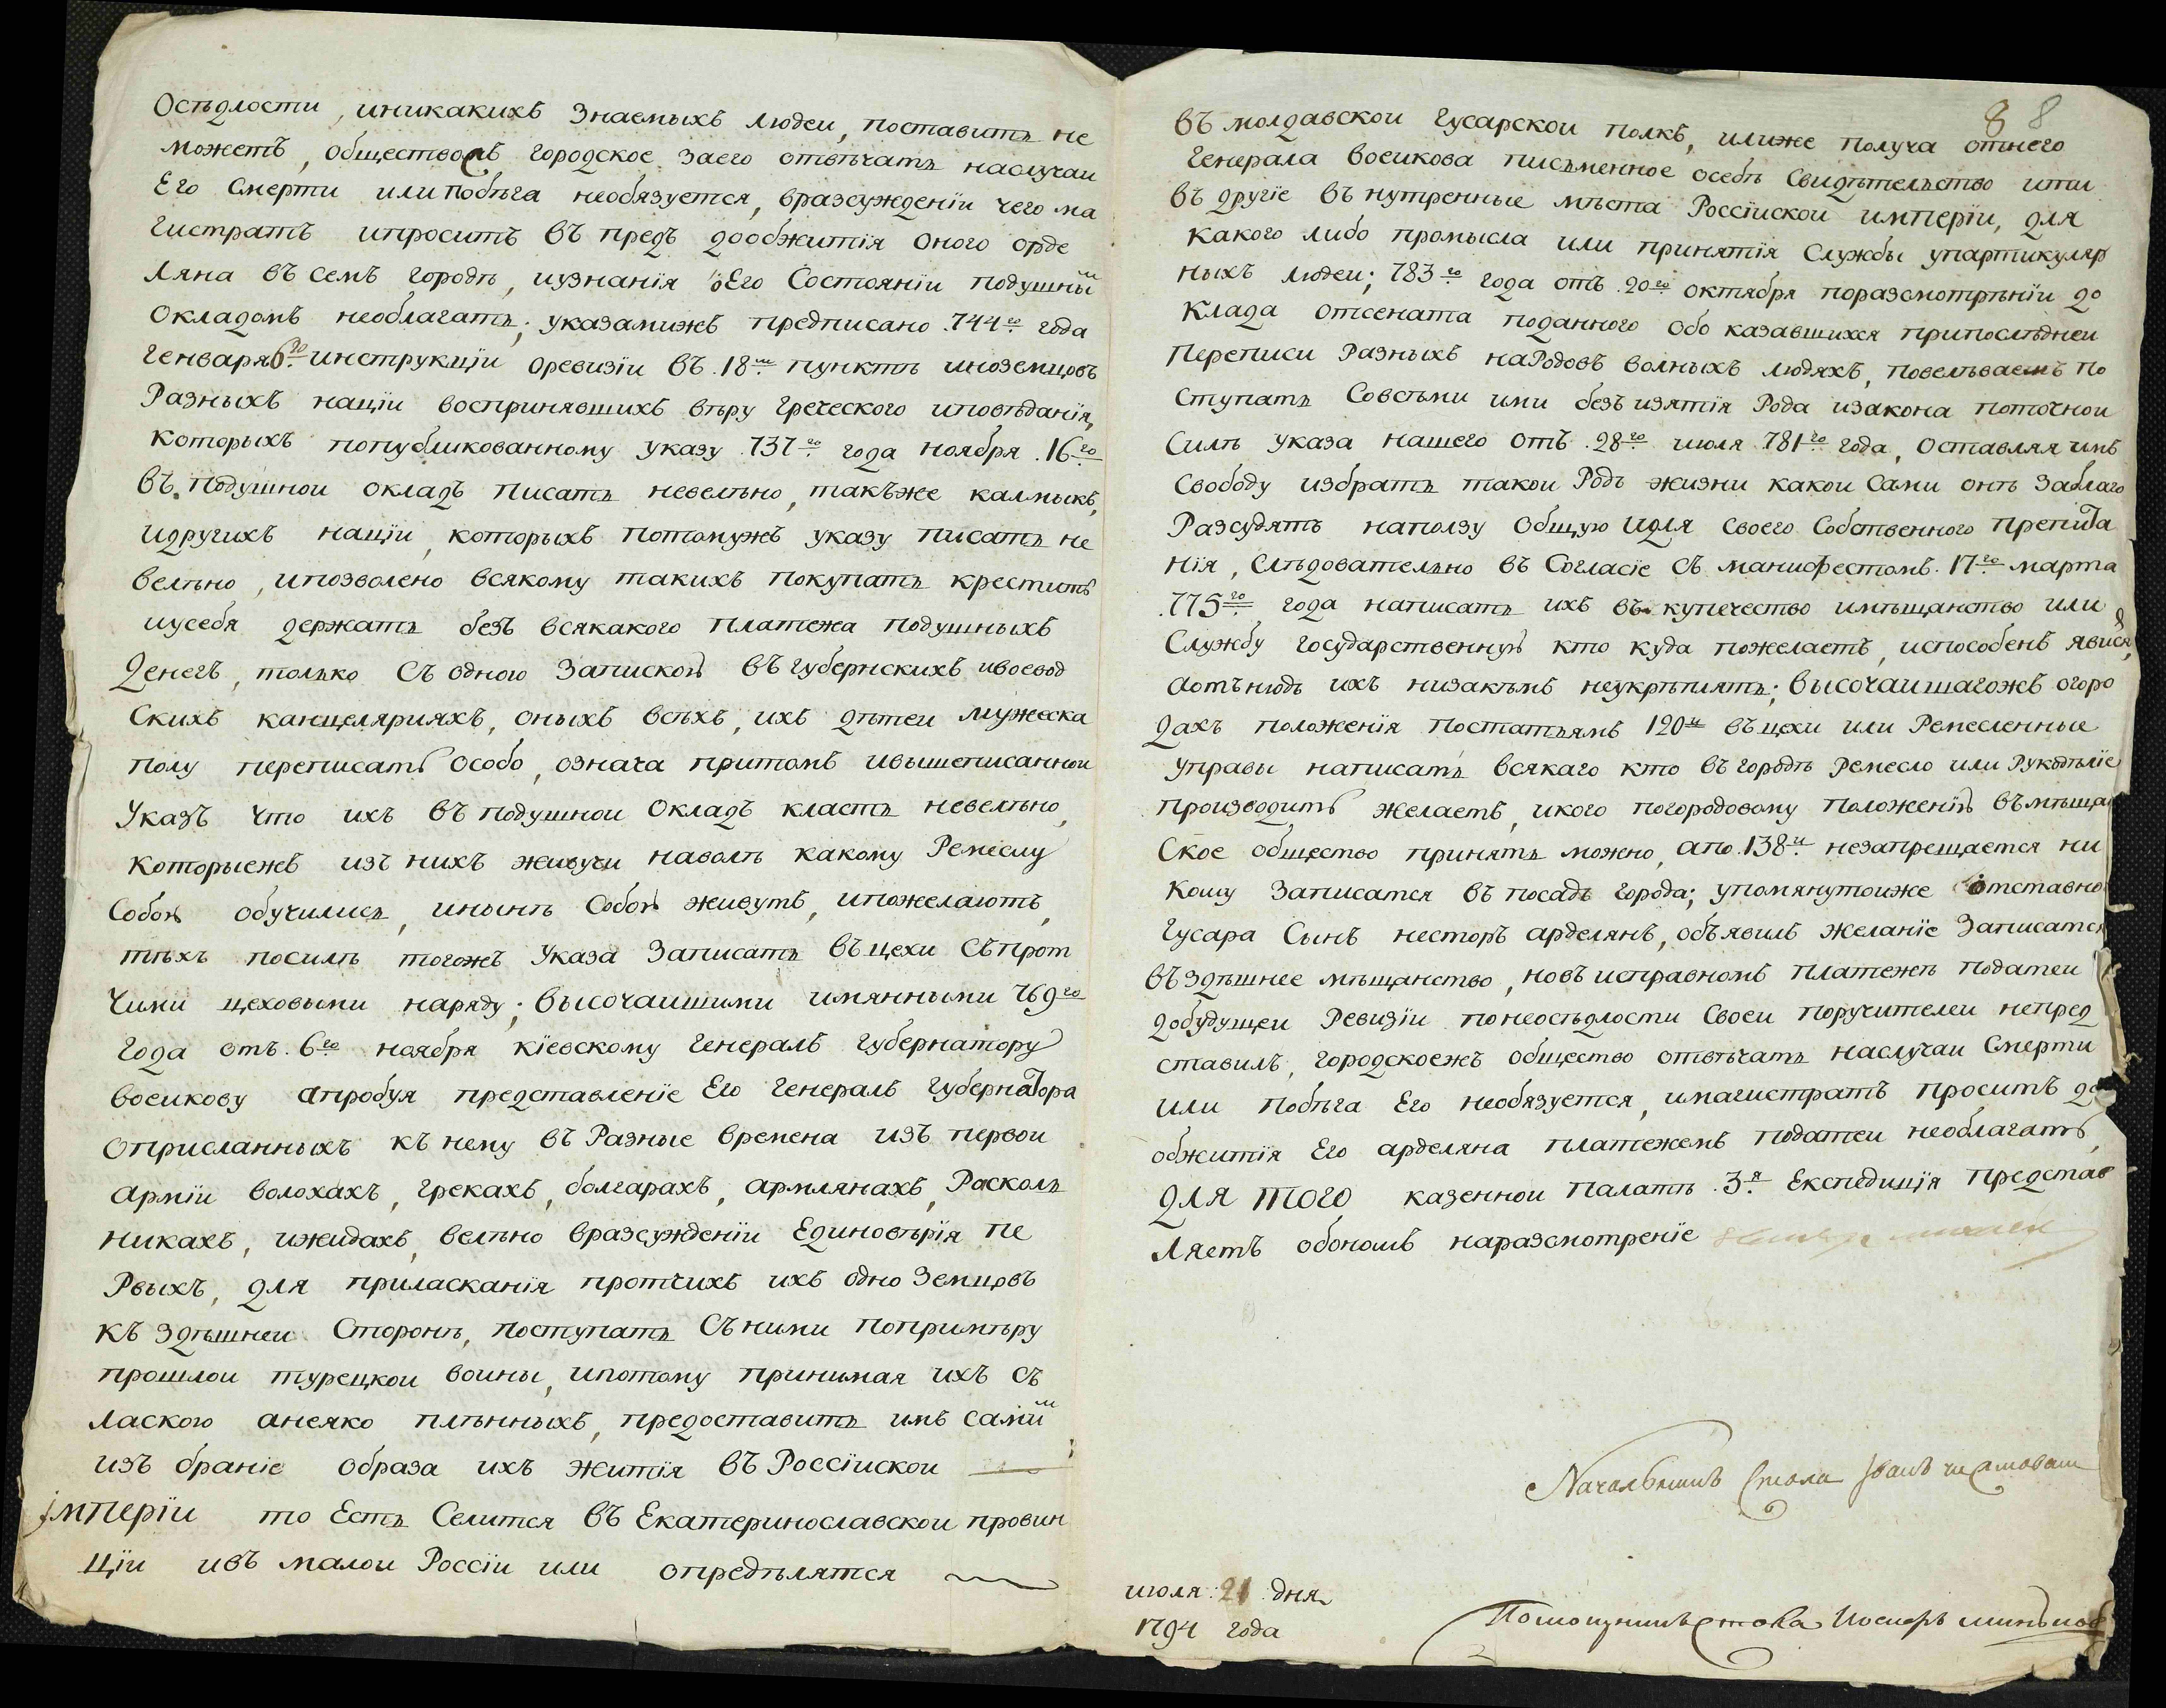 Осѣдлости, иникакихъ знаемыхъ людеи, поставить не
можетъ, обществожъ городское заего отвѣчать наслучаи
Его смерти или побѣга необязуется, вразсужденїи чего ма
гистратъ ипроситъ въ предъ дообжитїя оного арде
ляна въ семъ городѣ, иузнанїя оЕго Состоянїи подушны̆м
окладомъ необлагать; указамижъ предписано .744го года
генваря 6го инструкцїи оревизїи въ .18м пунктѣ иноземцовъ
Разныхъ нацїи воспринявшихъ вѣру греческого иповѣданїя,
которыхъ попубликованному указу .737го года ноября .16го
въ подушнои окладъ писать невелѣно, такъже калмыкъ,
идругихъ нацїи, которыхъ потомужъ указу писать не
велѣно, ипозволено всякому такихъ покупать крестить
иусебя держать безъ всякакого платежа подушныхъ
денегъ, только съ одною запискою въ губернскихъ ивоевод
скихъ канцелярияхъ, оныхъ всѣхъ, ихъ дѣтеи мужеска
полу переписать особо, означа притомъ ивышеписаннои
Указъ что ихъ въ подушнои окладъ класть невелѣно,
которыежъ изъ нихъ живучи наволѣ какому Ремеслу
собою обучились, инынѣ собою живутъ, ипожелаютъ,
тѣхъ посилѣ тогожъ Указа записать въ цехи съ прот
чими цеховыми наряду; высочаишими имянными 769го
года отъ .6го ноября кїевскому генералъ губернатору
воеикову апробуя представленїе Его генералъ губернатора
оприсланныхъ къ нему въ Разные времена изъ первои
армїи волохахъ, грекахъ, болгарахъ, армлянахъ, Расколь
никахъ, ижидахъ, велѣно вразсужденїи Единовѣрїя пе
рвыхъ, для приласканїя протчихъ ихъ одно земцовъ
къ здѣшнеи Сторонѣ, поступать съ ними попримѣру
прошлои турецкои воины, ипотому принимая ихъ съ
ласкою анеяко плѣнныхъ, предоставить имъ самим
изъ бранїе образа ихъ житїя въ Россїискои
имперїи то Есть Селится въ Екатеринославскои провин
цїи ивъ малои Россїи или опредѣлятся
8 8
въ молдавскои гусарскои полкъ, илиже получа отнего
генерала воеикова писменное осебѣ свидѣтельство ити
въ другїе въ нутренные мѣста Россїискои имперїи, для
какого либо промысла или принятїя службы упартикуляр
ныхъ людеи; 783го года отъ .20го октября поразсмотрѣнїи до
клада отсената поданного обо казавшихся припослѣднеи
переписи Разныхъ народовъ волныхъ людяхъ, повелѣваемъ по
ступать Совсѣми ими безъ изятїя Рода изакона поточнои
силѣ указа нашего отъ .28го июля .781го года, оставляя имъ
свободу избрать такои Родъ жизни какои сами онѣ заблаго
Разсудятъ наползу общую идля своего собственного препита
нїя, слѣдовательно въ согласїе съ манифестомъ .17го марта
.775го года написать ихъ въ купечество имѣщанство или
службу государственную кто куда пожелаетъ, испособенъ явися,
аотънюдь ихъ низакѣмъ неукрѣплять; высочаишагожъ огоро
дахъ положенїя постатьямъ 120и въ цехи или Ремесленные
управы написать всякаго кто въ городѣ ремесло или рукодѣлїе
производить желаетъ, икого погородовому положенїю въ мѣщан
ское общество принять можно, апо .138и незапрещается ни
кому записатся въ посадъ города; упомянутоиже отставно
гусара сынъ несторъ арделянъ, объявилъ желанїе записатся
въ здѣшнее мѣщанство, новъ исправномъ платежѣ податеи
добудущеи Ревизїи понеосѣдлости своеи поручителеи непред
ставилъ, городскоежъ общество отвѣчать наслучаи смерти
или побѣга Его необязуется, имагистратъ проситъ до
обжитїя Его арделяна платежемъ податеи необлагать,
для того казеннои палатѣ .3я Експедицїя представ
ляетъ обономъ наразсмотренїе
Началникъ Стола Иванъ
июля 21 дня
1794 года
Помощникъ стола Иосифъ